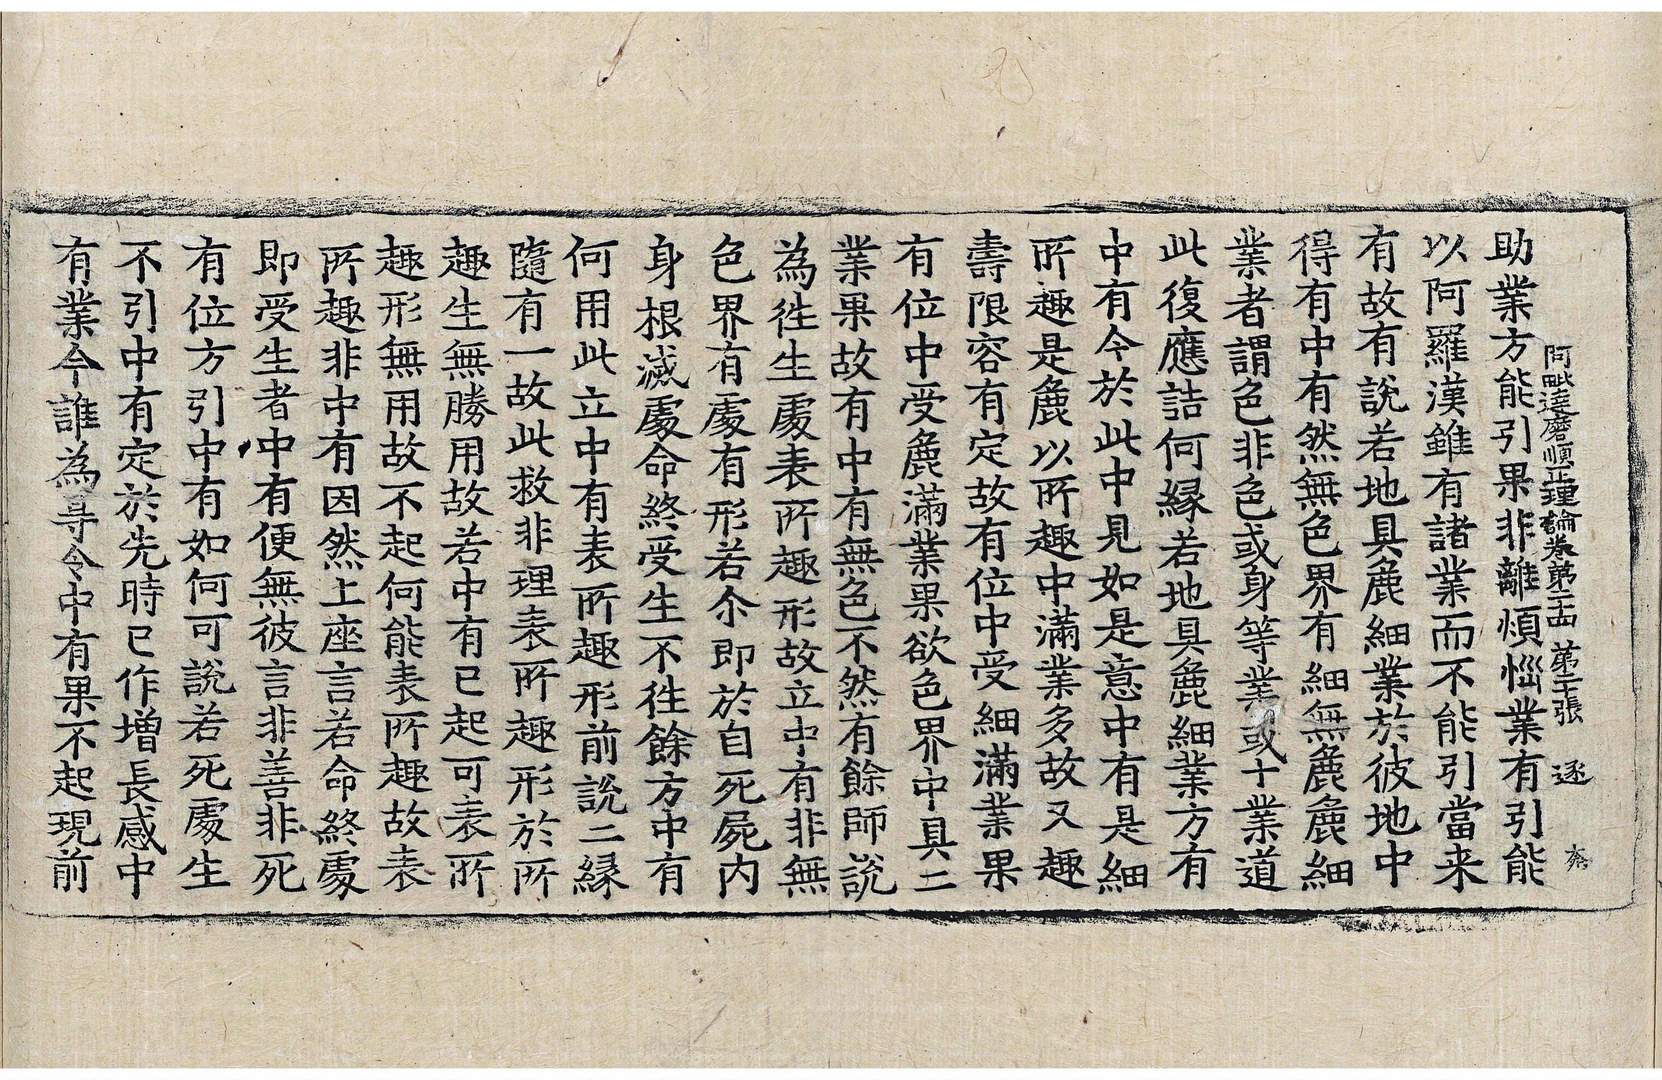 阿毗達磨順正理論卷第二十四　第二十張　逐
助業方能引果非離煩惱業有引能
以阿羅漢雖有諸業而不能引當来
有故有說若地具麁細業於彼地中
得有中有然無色界有細無麁麁細
業者謂色非色或身等業或十業道
此復應詰何縁若地具麁細業方有
中有今於此中見如是意中有是細
所趣是麁以所趣中滿業多故又趣
壽限容有定故有位中受細滿業果
有位中受麁滿業果欲色界中具二
業果故有中有無色不然有餘師說
為徃生處表所趣形故立中有非無
色界有處有形若尒即於自死屍内
身根滅處命終受生不徃餘方中有
何用此立中有表所趣形前說二縁
隨有一故此救非理表所趣形於所
趣生無勝用故若中有已起可表所
趣形無用故不起何能表所趣故表
所趣非中有因然上座言若命終處
即受生者中有便無彼言非善非死
有位方引中有如何可說若死處生
不引中有定於先時已作增長感中
有業今誰為㝵令中有果不起現前